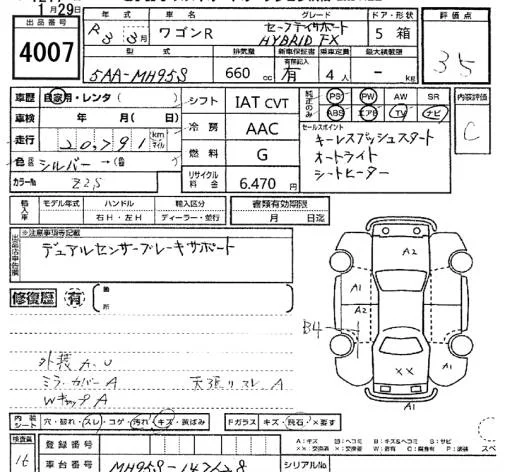 1月29日
出品番号 年式 車名 グレード ドア・形状 評価点
4007 R3 3月 ワゴンR セーフティサポート HYBRID FX 5 箱 3.5
排気量 新車保証書 乗車定員 最大積載量
5AA-MH95S 660 cc 有 4人 - kg
車歴 自家用・レンタ( ) シフト IAT CVT 純正のみ PS PW AW SR 内装評価
ABS エアB TV ナビ C
車検 年 月( 日) 冷房 AAC セールスポイント
走行 20,791 km マイル キーレスプッシュスタート
色 シルバー → (色 ) 燃料 G オートライト
カラーNo Z2S リサイクル料金 6,470円 シートヒーター
輸入車 モデル年式 ハンドル 輸入区分 書類有効期限
右H・左H ディーラー・並行 月 日迄
※注意事項等記載
デュアルセンサーブレーキサポート
A2
A1
修復歴 有 箇所
B4
A1
外装 A.U
ミラーカバーA 天張りスレ A
WキャップA
XX
A1
A1
内装シート 穴・破れ・スレ・コゲ・汚れ・キズ・黄ばみ Fガラス キズ・飛石・X要す
検査員 登録番号 A:キズ
16 車台番号 MH95S- シリアルNo